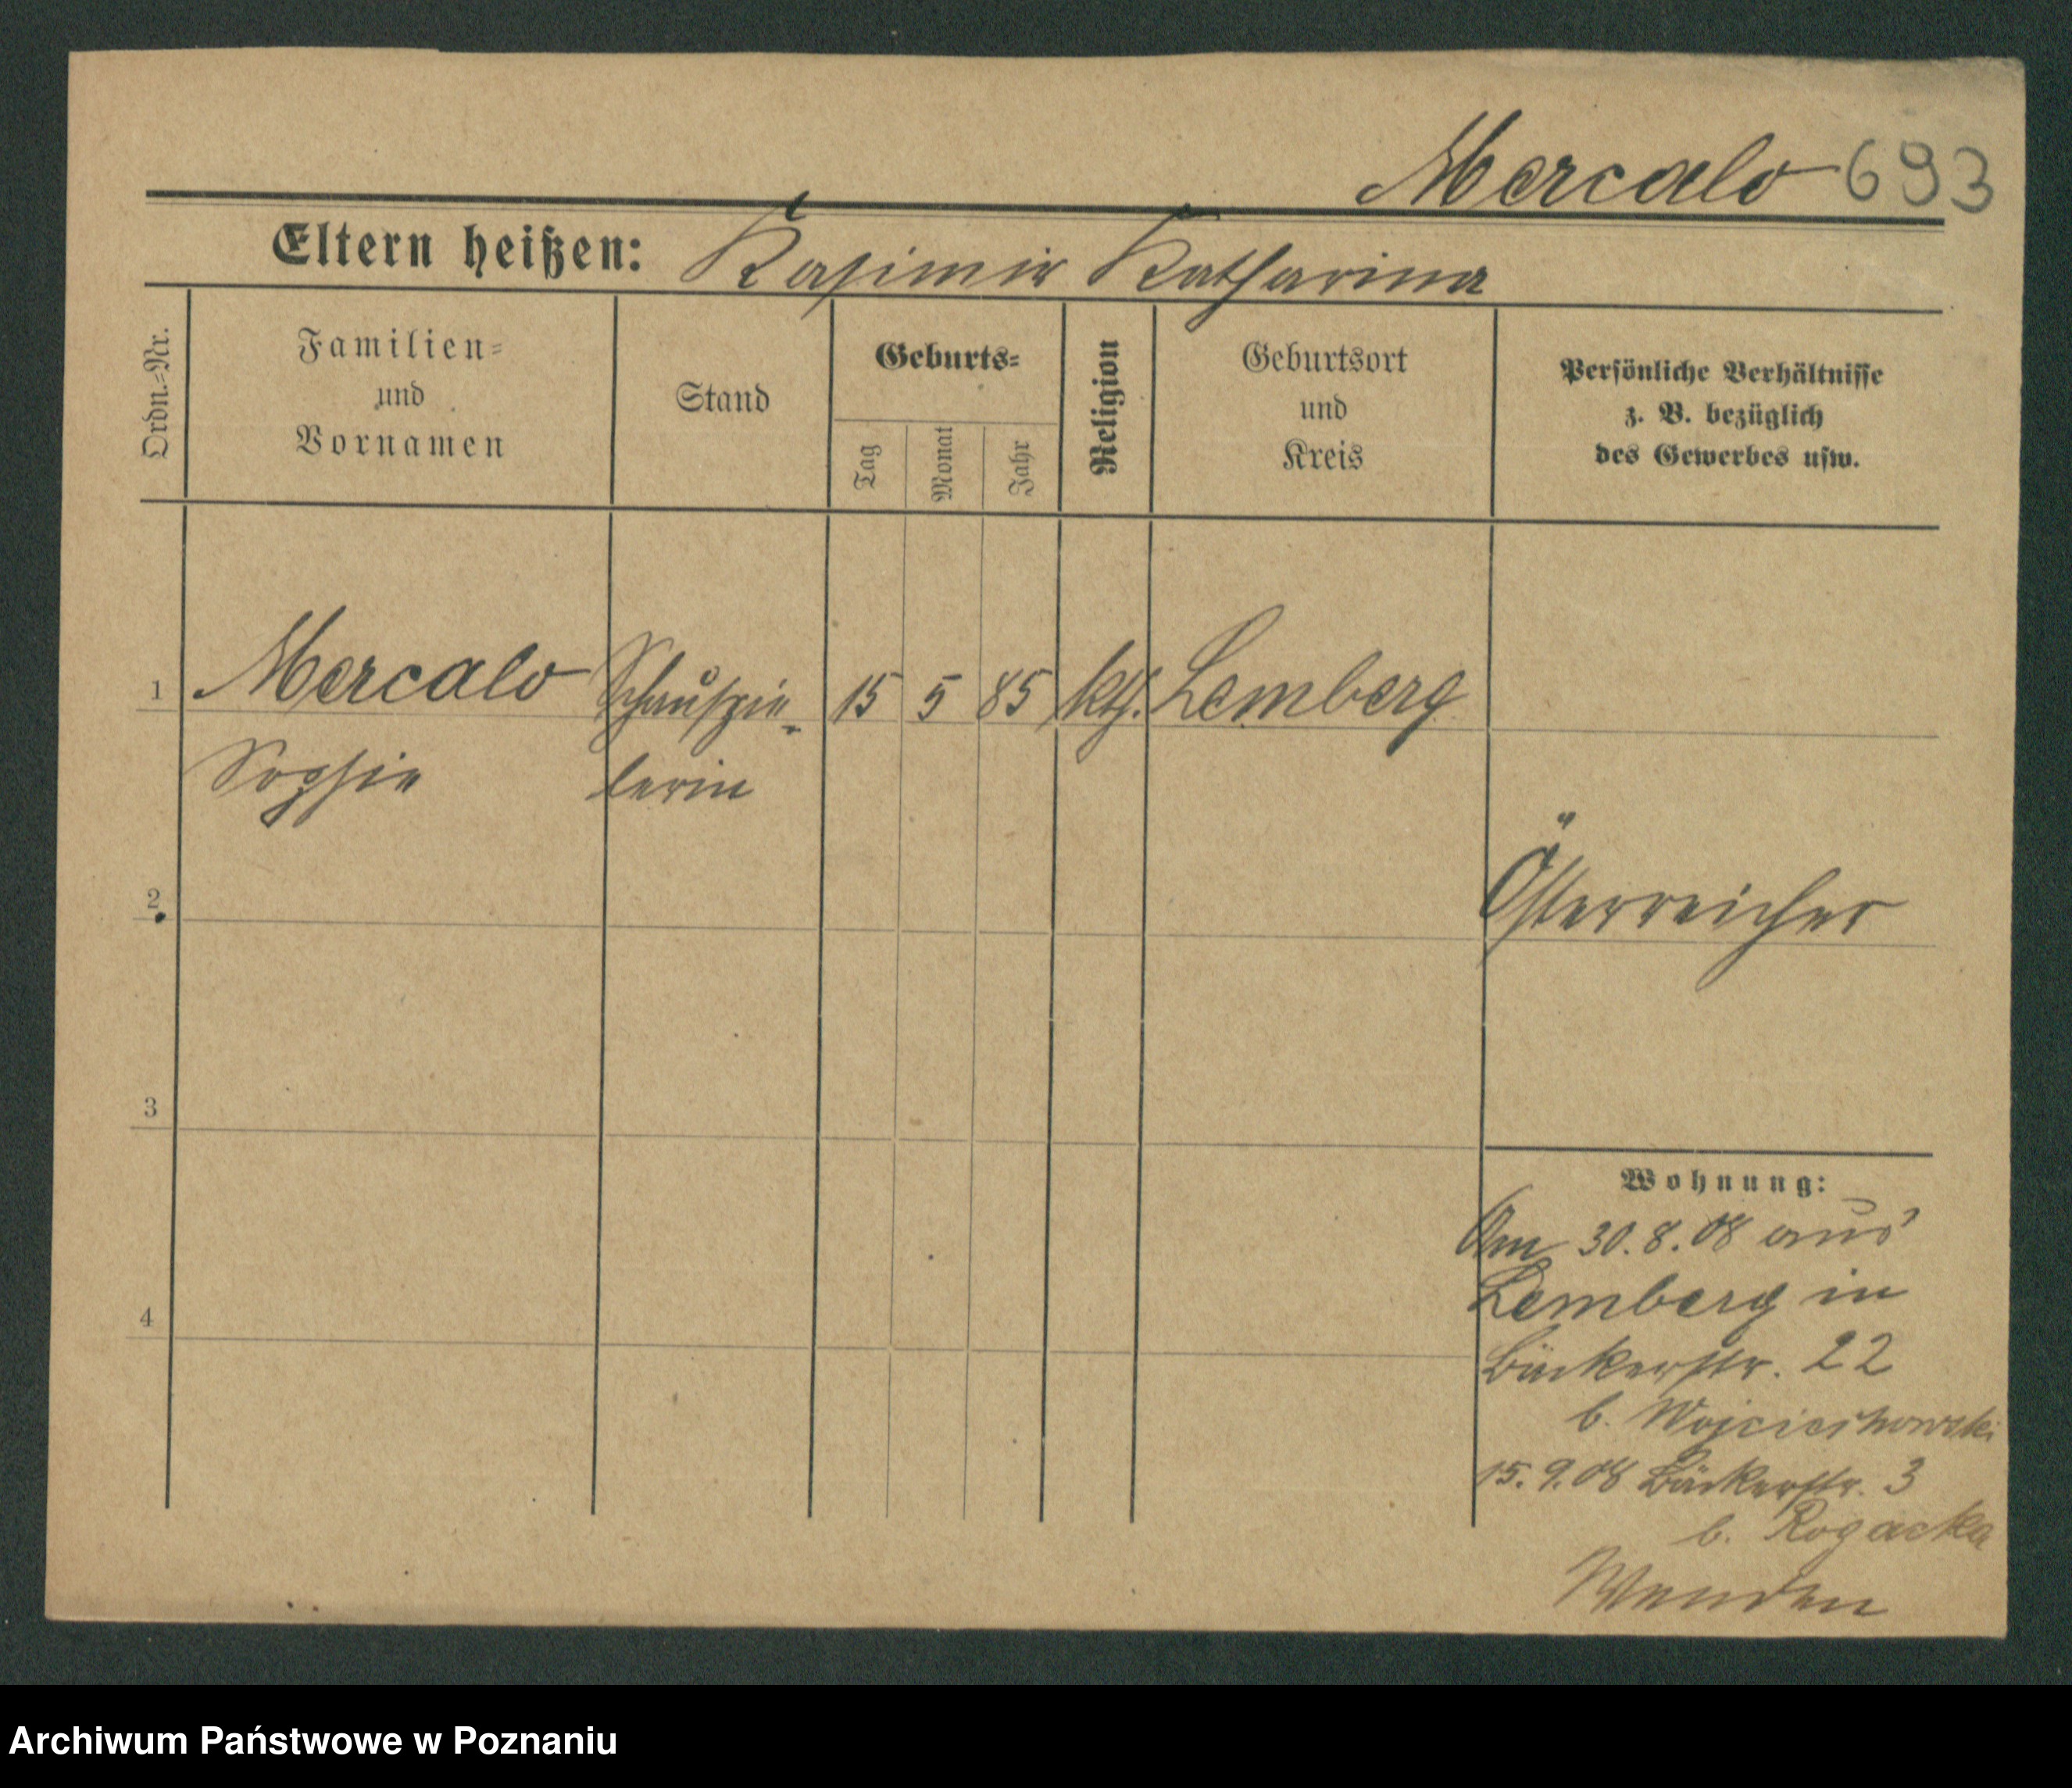 Mercalo 693
Eltern heißen: Kasimir Katharina
Ordn.-Nr.
Familien-
und
Vornamen
Stand
Geburts-
Tag
Monat
Jahr
Religion
Geburtsort
und
Kreis
Persönliche Verhältnisse
z. B. bezüglich
des Gewerbes usw.
1 Mercalo Schauspie- 15 5 85 kth. Lemberg
Sophie lerin
2
Österreicher
3
Wohnung:
Am 30.8.08 aus
Lemberg in
4
Bäckerstr. 22
b. Wojciechowski
15.9.08 Bäckerstr. 3
b. Rogacka
Wenden
Archiwum Państwowe w Poznaniu